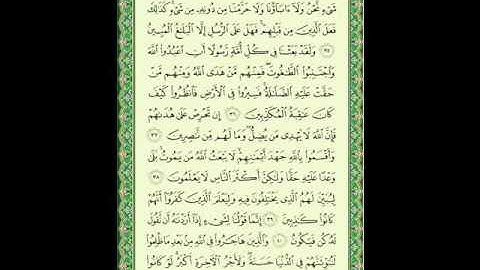 شَيْءٍ نَّحْنُ وَلَآ ءَابَآؤُنَا وَلَا حَرَّمْنَا مِن دُونِهِۦ مِن شَيْءٍ ۚ كَذَٰلِكَ
فَعَلَ ٱلَّذِينَ مِن قَبْلِهِمْ ۚ فَهَلْ عَلَى ٱلرُّسُلِ إِلَّا ٱلْبَلَٰغُ ٱلْمُبِينُ
٣٥ وَلَقَدْ بَعَثْنَا فِى كُلِّ أُمَّةٍ رَّسُولًا أَنِ ٱعْبُدُوا۟ ٱللَّهَ
وَٱجْتَنِبُوا۟ ٱلطَّٰغُوتَ ۖ فَمِنْهُم مَّنْ هَدَى ٱللَّهُ وَمِنْهُم مَّنْ
حَقَّتْ عَلَيْهِ ٱلضَّلَٰلَةُ ۚ فَسِيرُوا۟ فِى ٱلْأَرْضِ فَٱنظُرُوا۟ كَيْفَ
كَانَ عَٰقِبَةُ ٱلْمُكَذِّبِينَ ٣٦ إِن تَحْرِصْ عَلَىٰ هُدَىٰهُمْ
فَإِنَّ ٱللَّهَ لَا يَهْدِى مَن يُضِلُّ ۖ وَمَا لَهُم مِّن نَّٰصِرِينَ ٣٧
وَأَقْسَمُوا۟ بِٱللَّهِ جَهْدَ أَيْمَٰنِهِمْ ۙ لَا يَبْعَثُ ٱللَّهُ مَن يَمُوتُ ۚ بَلَىٰ
وَعْدًا عَلَيْهِ حَقًّا وَلَٰكِنَّ أَكْثَرَ ٱلنَّاسِ لَا يَعْلَمُونَ ٣٨
لِيُبَيِّنَ لَهُمُ ٱلَّذِى يَخْتَلِفُونَ فِيهِ وَلِيَعْلَمَ ٱلَّذِينَ كَفَرُوٓا۟ أَنَّهُمْ
كَانُوا۟ كَٰذِبِينَ ٣٩ إِنَّمَا قَوْلُنَا لِشَىْءٍ إِذَآ أَرَدْنَٰهُ أَن نَّقُولَ
لَهُۥ كُن فَيَكُونُ ٤٠ وَٱلَّذِينَ هَاجَرُوا۟ فِى ٱللَّهِ مِنۢ بَعْدِ مَا ظُلِمُوا۟
لَنُبَوِّئَنَّهُمْ فِى ٱلدُّنْيَا حَسَنَةً ۖ وَلَأَجْرُ ٱلْءَاخِرَةِ أَكْبَرُ ۚ لَوْ كَانُوا۟